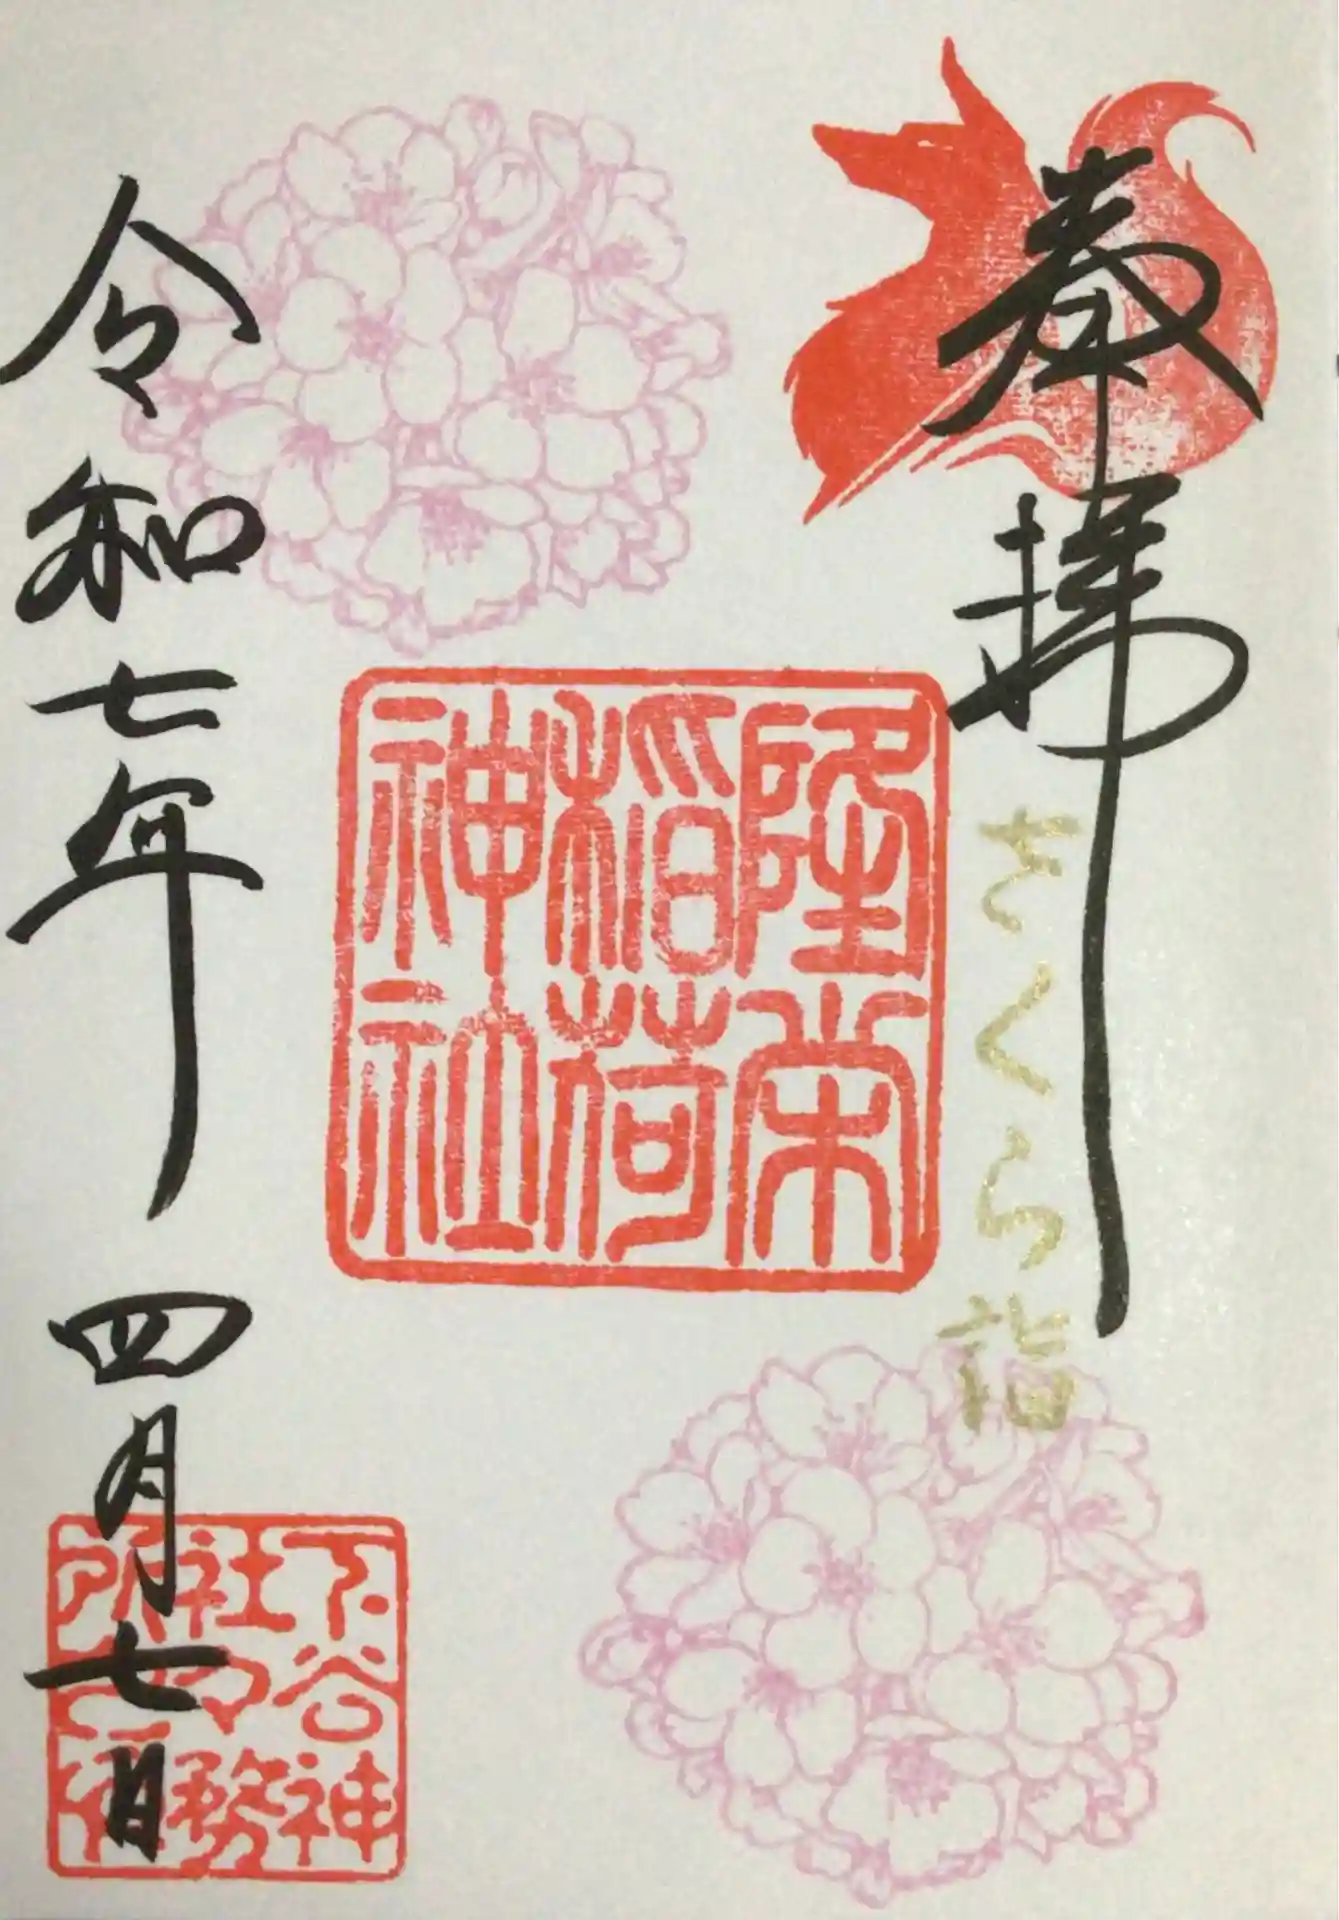 奉拝
さくら詣
隆栄
稲荷
神社
令和七年 四月七日
下谷神
社々務
所